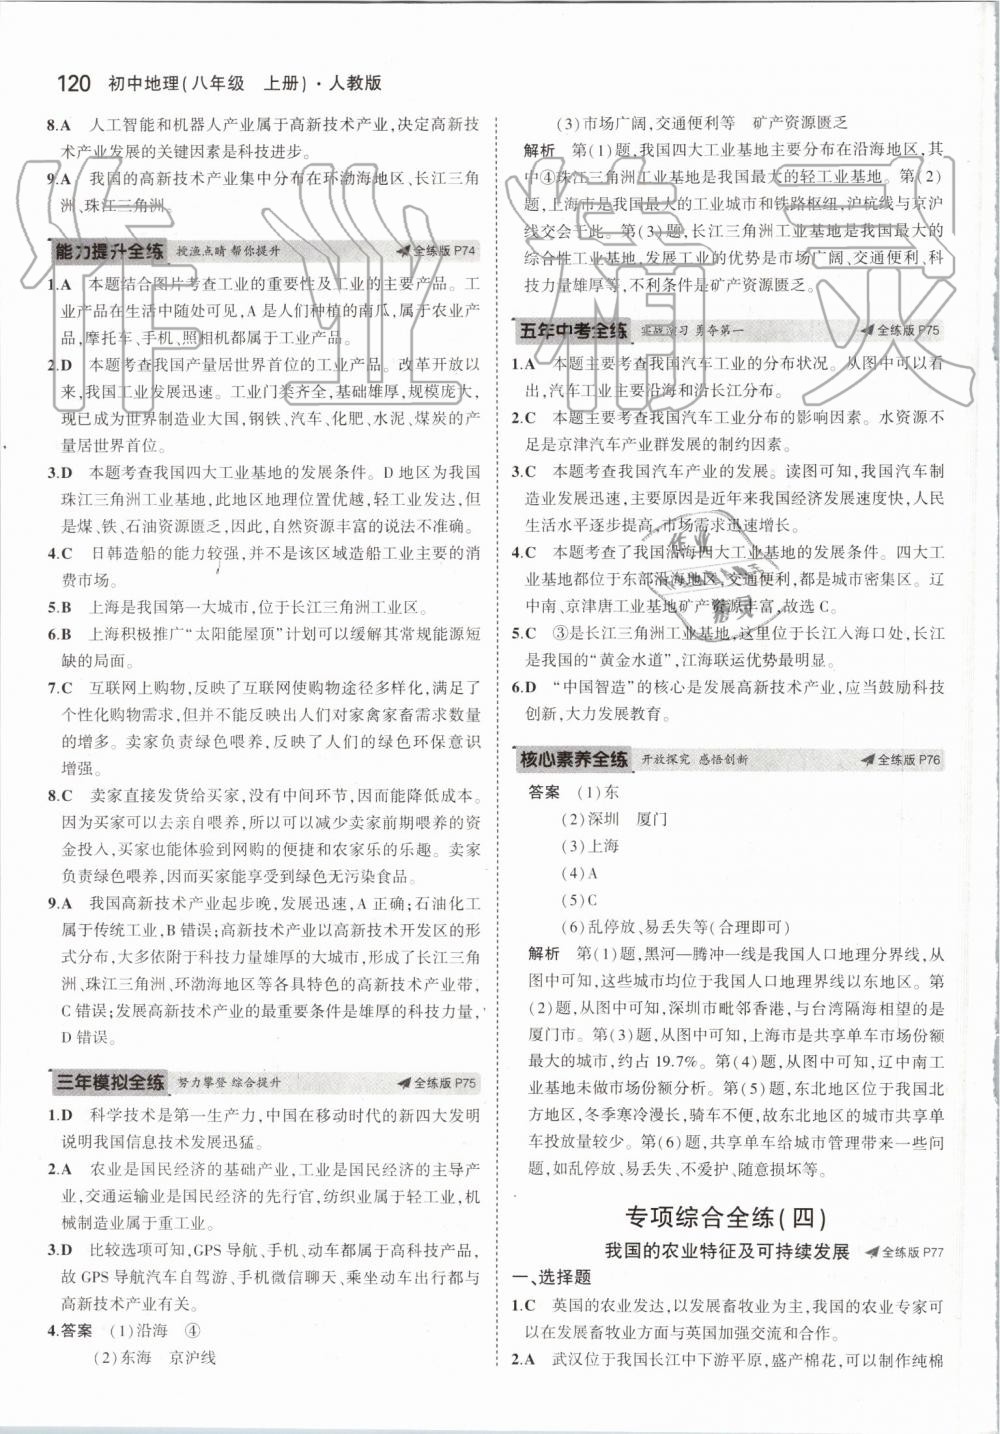 120 初中地理(八年级 上册)·人教版
8.A 人工智能和机器人产业属于高新技术产业,决定高新技
术产业发展的关键因素是科技进步。
9.A 我国的高新技术产业集中分布在环渤海地区、长江三角
洲、珠江三角洲。
能力提升全练 授渔点睛 帮你提升 全练版 P74
1.A 本题结合图片考查工业的重要性及工业的主要产品。工
业产品在生活中随处可见,A 是人们种植的南瓜,属于农业产
品,摩托车、手机、照相机都属于工业产品。
2.D 本题考查我国产量居世界首位的工业产品。改革开放以
来,我国工业发展迅速。工业门类齐全,基础雄厚,规模庞大,
现已成为世界制造业大国,钢铁、汽车、化肥、水泥、煤炭的产
量居世界首位。
3.D 本题考查我国四大工业基地的发展条件。D 地区为我国
珠江三角洲工业基地,此地区地理位置优越,轻工业发达,但
是煤、铁、石油资源匮乏,因此,自然资源丰富的说法不准确。
4.C 日韩造船的能力较强,并不是该区域造船工业主要的消
费市场。
5.B 上海是我国第一大城市,位于长江三角洲工业区。
6.B 上海积极推广“太阳能屋顶”计划可以缓解其常规能源短
缺的局面。
7.C 互联网上购物,反映了互联网使购物途径多样化,满足了
个性化购物需求,但并不能反映出人们对家禽家畜需求数量
的增多。卖家负责绿色喂养,反映了人们的绿色环保意识
增强。
8.C 卖家直接发货给买家,没有中间环节,因而能降低成本。
因为买家可以去亲自喂养,所以可以减少卖家前期喂养的资
金投入,买家也能体验到网购的便捷和农家乐的乐趣。卖家
负责绿色喂养,因而买家能享受到绿色无污染食品。
9.A 我国高新技术产业起步晚,发展迅速,A 正确;石油化工
属于传统工业,B 错误;高新技术产业以高新技术开发区的形
式分布,大多依附于科技力量雄厚的大城市,形成了长江三角
洲、珠江三角洲、环渤海地区等各具特色的高新技术产业带,
C 错误;发展高新技术产业的最重要条件是雄厚的科技力量,
D 错误。
三年模拟全练 努力攀登 综合提升 全练版 P75
1.D 科学技术是第一生产力,中国在移动时代的新四大发明
说明我国信息技术发展迅猛。
2.A 农业是国民经济的基础产业,工业是国民经济的主导产
业,交通运输业是国民经济的先行官,纺织业属于轻工业,机
械制造业属于重工业。
3.D 比较选项可知,GPS 导航、手机、动车都属于高科技产品,
故 GPS 导航汽车自驾游、手机微信聊天、乘坐动车出行都与
高新技术产业有关。
4.答案 (1)沿海 ④
(2)东海 京沪线
(3)市场广阔,交通便利等 矿产资源匮乏
解析 第(1)题,我国四大工业基地主要分布在沿海地区,其
中④珠江三角洲工业基地是我国最大的轻工业基地。第(2)
题,上海市是我国最大的工业城市和铁路枢纽,沪杭线与京沪
线交会于此。第(3)题,长江三角洲工业基地是我国最大的
综合性工业基地,发展工业的优势是市场广阔、交通便利、科
技力量雄厚等,不利条件是矿产资源匮乏。
五年中考全练 实战演习 勇夺第一 全练版 P75
1.A 本题主要考查我国汽车工业的分布状况。从图中可以看
出,汽车工业主要沿海和沿长江分布。
2.C 本题主要考查我国汽车工业分布的影响因素。水资源不
足是京津汽车产业群发展的制约因素。
3.C 本题考查我国汽车产业的发展。读图可知,我国汽车制
造业发展迅速,主要原因是近年来我国经济发展速度快,人民
生活水平逐步提高,市场需求迅速增长。
4.C 本题考查了我国沿海四大工业基地的分布。四大工
业基地都位于东部沿海地区,交通便利,都是城市密集区。辽
中南、京津唐工业基地矿产资源丰富,故选 C。
5.C ③是长江三角洲工业基地,这里位于长江入海口处,长江
是我国的“黄金水道”,江海联运优势最明显。
6.D “中国智造”的核心是发展高新技术产业,应当鼓励科技
创新,大力发展教育。
核心素养全练 开放探究 感悟创新 全练版 P76
答案 (1)东
(2)深圳 厦门
(3)上海
(4)A
(5)C
(6)乱停放、易丢失等(合理即可)
解析 第(1)题,黑河—腾冲一线是我国人口地理分界线,从
图中可知,这些城市均位于我国人口地理界线以东地区。第
(2)题,从图中可知,深圳市毗邻香港,与台湾隔海相望的是
厦门市。第(3)题,从图中可知,上海市是共享单车市场份额
最大的城市,约占 19.7%。第(4)题,从图中可知,辽中南工业
基地未做市场份额分析。第(5)题,东北地区位于我国北
方地区,冬季寒冷漫长,骑车不便,故东北地区的城市共享单
车投放量较少。第(6)题,共享单车给城市管理带来一些问
题,如乱停放、易丢失、不爱护、随意损坏等。
专项综合全练(四)
我国的农业特征及可持续发展 全练版 P77
一、选择题
1.C 英国的农业发达,以发展畜牧业为主,我国的农业专家可
以在发展畜牧业方面与英国加强交流和合作。
2.A 武汉位于我国长江中下游平原,盛产棉花,可以制作纯棉